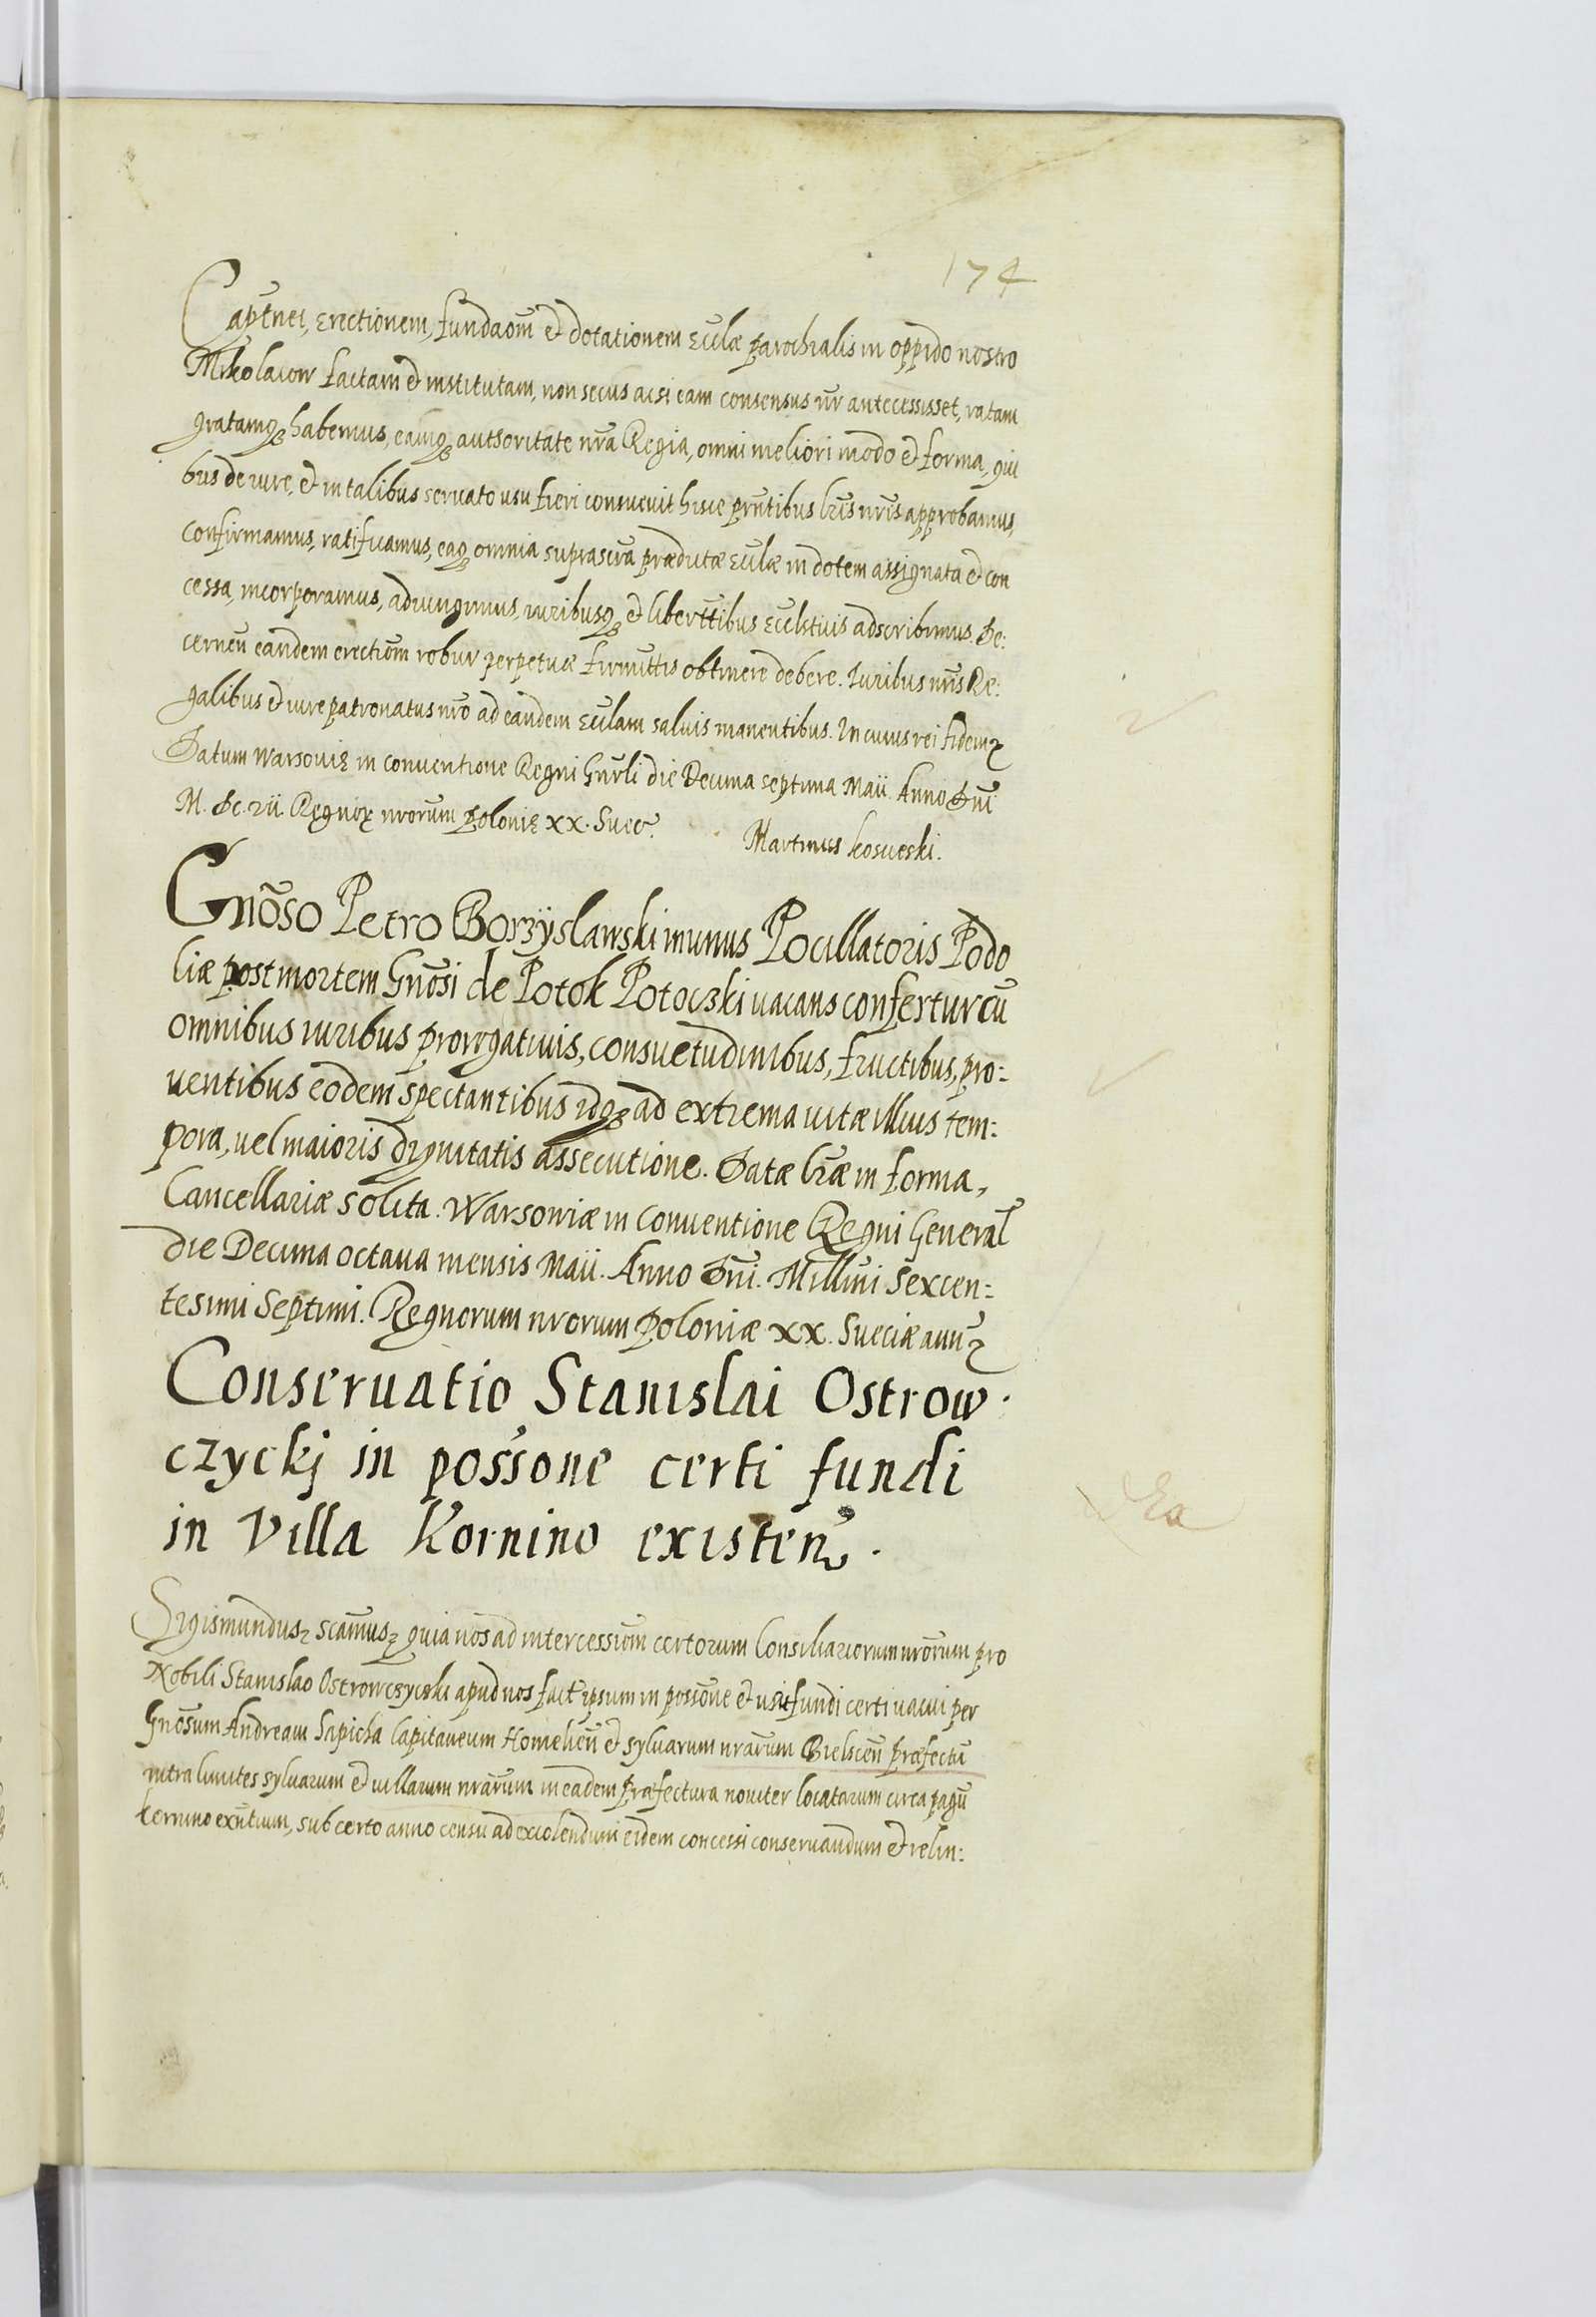 174
Captnei, Erectionem, fundaom̃ et dotationem Eccłæ parochialis in oppido nostro
Mikolaiow factam et institutam, non secus acsi eam consensus nr̃ antecessisset, ratam
gratamq₃ habemus, eamq₃ authoritate nr̃a Regia, omni meliori modo et forma, qui
bus de iure, et in talibus seruato usu fieri consueuit hisce prñtibus lr̃is nr̃is approbamus,
confirmamus, ratificamus, eaq₃ omnia suprascr̃a prædictæ Eccłæ in dotem assignata et con
cessa, incorporamus, adiungimus, iuribusq₃ et liberttibus Eccłsticis adscribimus. De:
cernen̄ eandem erectiom̃ robur perpetuæ firmittis obtinere debere. Iuribus nr̃is Re:
galibus et iure patronatus nr̃o ad eandem Eccłam saluis manentibus. In cuius rei fidem
Datum Warsouię in conuentione Regni Gnr̃li die Decima septima Maii. Anno Dn̄i
M. Dc. vii. Regnoꝝ nrorum Polonię xx. Suec.
Martinus kosueski.
Gnōso Petro Borzÿslawski munus Pocillatoris Podo
liæ post mortem Gnōsi de Potok Potoczki uacans confertur cū
omnibus iuribus prorogatiuis, consuetudinibus, fructibus, pro:
uentibus eodem spectantibus idq₃ ad extrema uitæ illius tem:
pora, uel maioris dignitatis assecutione. Datæ lr̃æ in forma,
Cancellariæ solita. Warsouiæ in Conuentione Regni General
die Decima octaua mensis Maii. Anno Dn̄i. Millmi sexcen:
tesimi Septimi. Regnorum nrorum Poloniæ xx. Sueciæ
Conseruatio Stanislai Ostrow
czyckj in possone certi fundi
in Villa Kornino existen̄.
Sigismundus scamus quia nos ad intercessiom̃ certorum Consiliariorum nrōrum pro
Nobili Stanislao Ostrowczycki apud nos fact ipsum in possōne et usu fundi certi uacui per
Gnōsum Andream Sapieha Capitaneum Homelien̄ et syluarum nrārum Bielscen̄ præfectū
intra limites syluarum et uillarum nrārum in eadem præfectura nouiter locatarum circa pagū
kornino exñtium, sub certo anno censu ad excolendum eidem concessi conseruandum et relin: